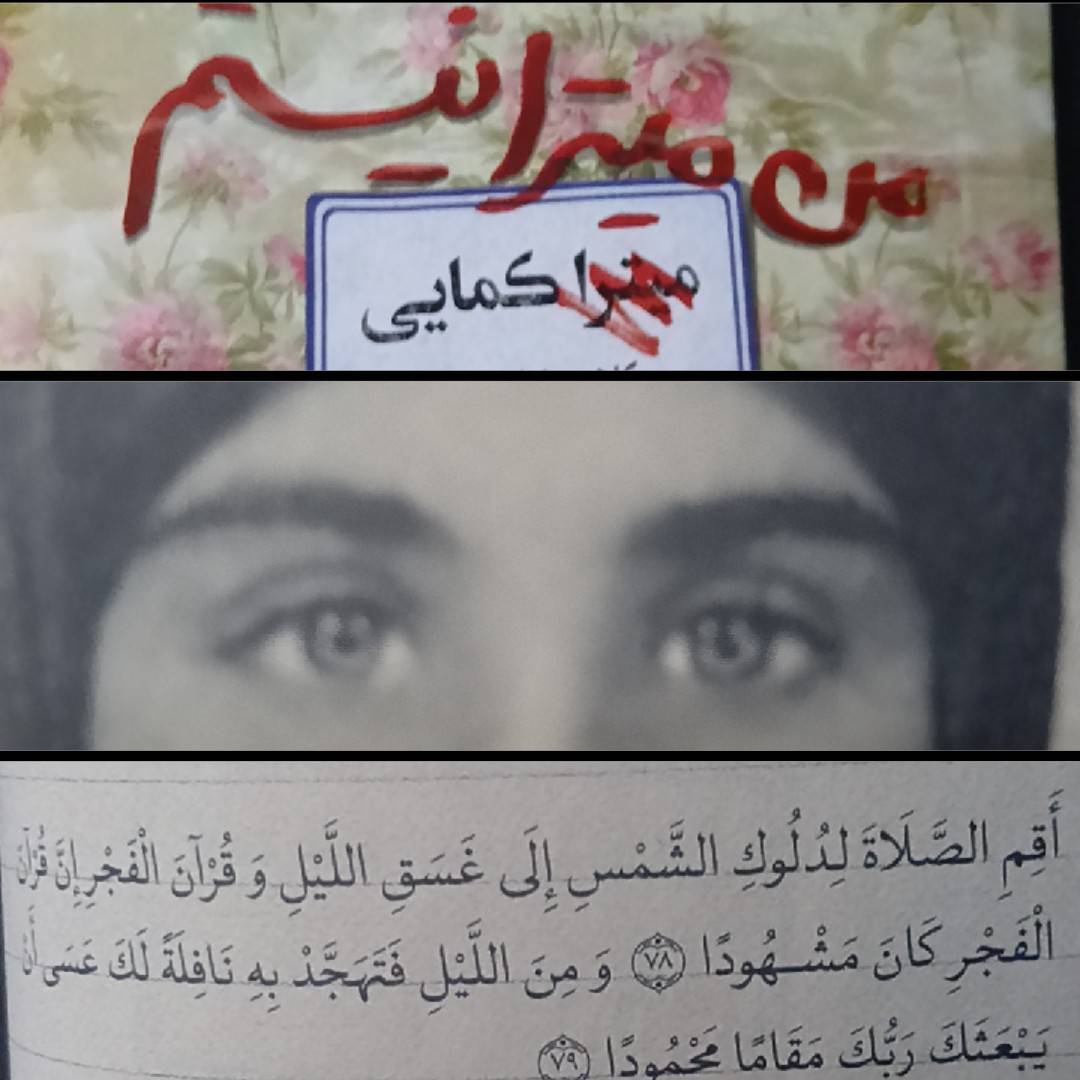 من میترا نیستم
میترا کمایی
أَقِمِ الصَّلَاةَ لِدُلُوكِ الشَّمْسِ إِلَى غَسَقِ اللَّيْلِ وَ قُرْآنَ الْفَجْرِ إِنَّ قُرْآنَ
الْفَجْرِ كَانَ مَشْهُودًا ﴿٧٨﴾ وَ مِنَ اللَّيْلِ فَتَهَجَّدْ بِهِ نَافِلَةً لَكَ عَسَى أَنْ
يَبْعَثَكَ رَبُّكَ مَقَامًا مَحْمُودًا ﴿٧٩﴾